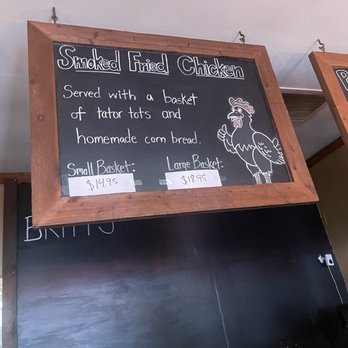 Smoked Fried Chicken
Served with a basket
of tator tots and
homemade corn bread.
Small Basket: Large Basket:
$14.95 $18.95